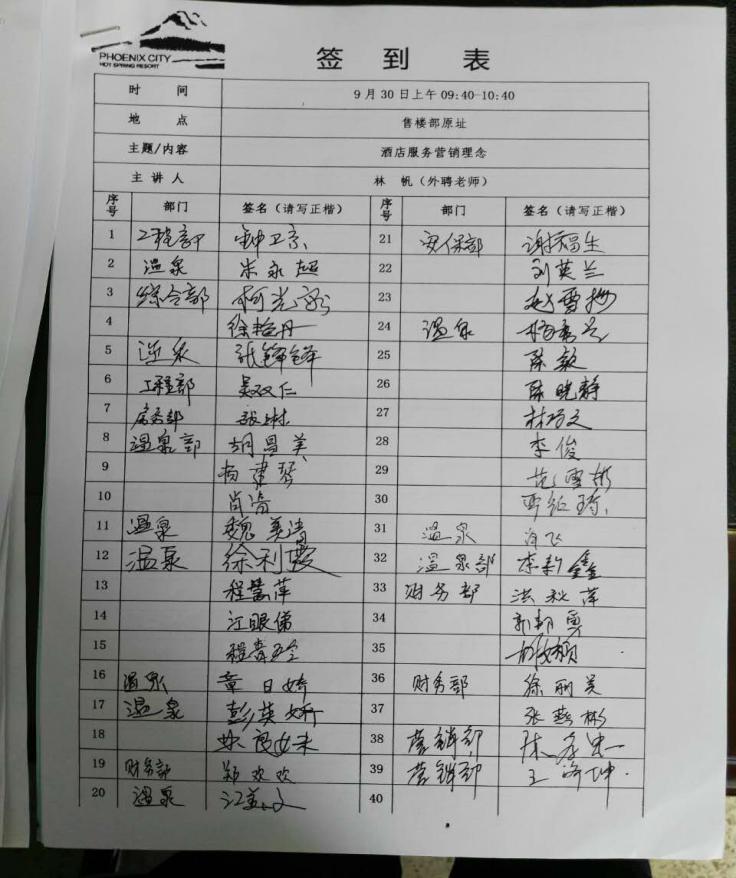 PHOENIX CITY
HOT SPRING RESORT
签 到 表
时 间 9月30日上午09:40-10:40
地 点 售楼部原址
主题/内容 酒店服务营销理念
主 讲 人 林 帆(外聘老师)
序号 部门 签名(请写正楷) 序号 部门 签名(请写正楷)
1 工程部 钟卫京 21 安保部 谢福生
2 温泉 朱永超 22 刘英兰
3 综合部 柯光 23 赵雪梅
4 徐艳丹 24 温泉 杨秀兰
5 温泉 张锋锋 25 陈敏
6 工程部 吴双仁 26 陈晓静
7 房务部 张琳 27 林巧文
8 温泉部 胡昌美 28 李俊
9 杨建琴 29 范雪彬
10 肖涛 30
11 温泉 魏美清 31 温泉 肖飞
12 温泉 徐利霞 32 温泉部 李新鑫
13 程慧萍 33 财务部 洪秋萍
14 江眼俤 34 郭勇
15 程 35
16 温泉 章日娇 36 财务部 徐丽美
17 温泉 彭英娇 37 张燕彬
18 38 营销部 陈
19 财务部 郑欢欢 39 营销部 王
20 温泉 江美文 40